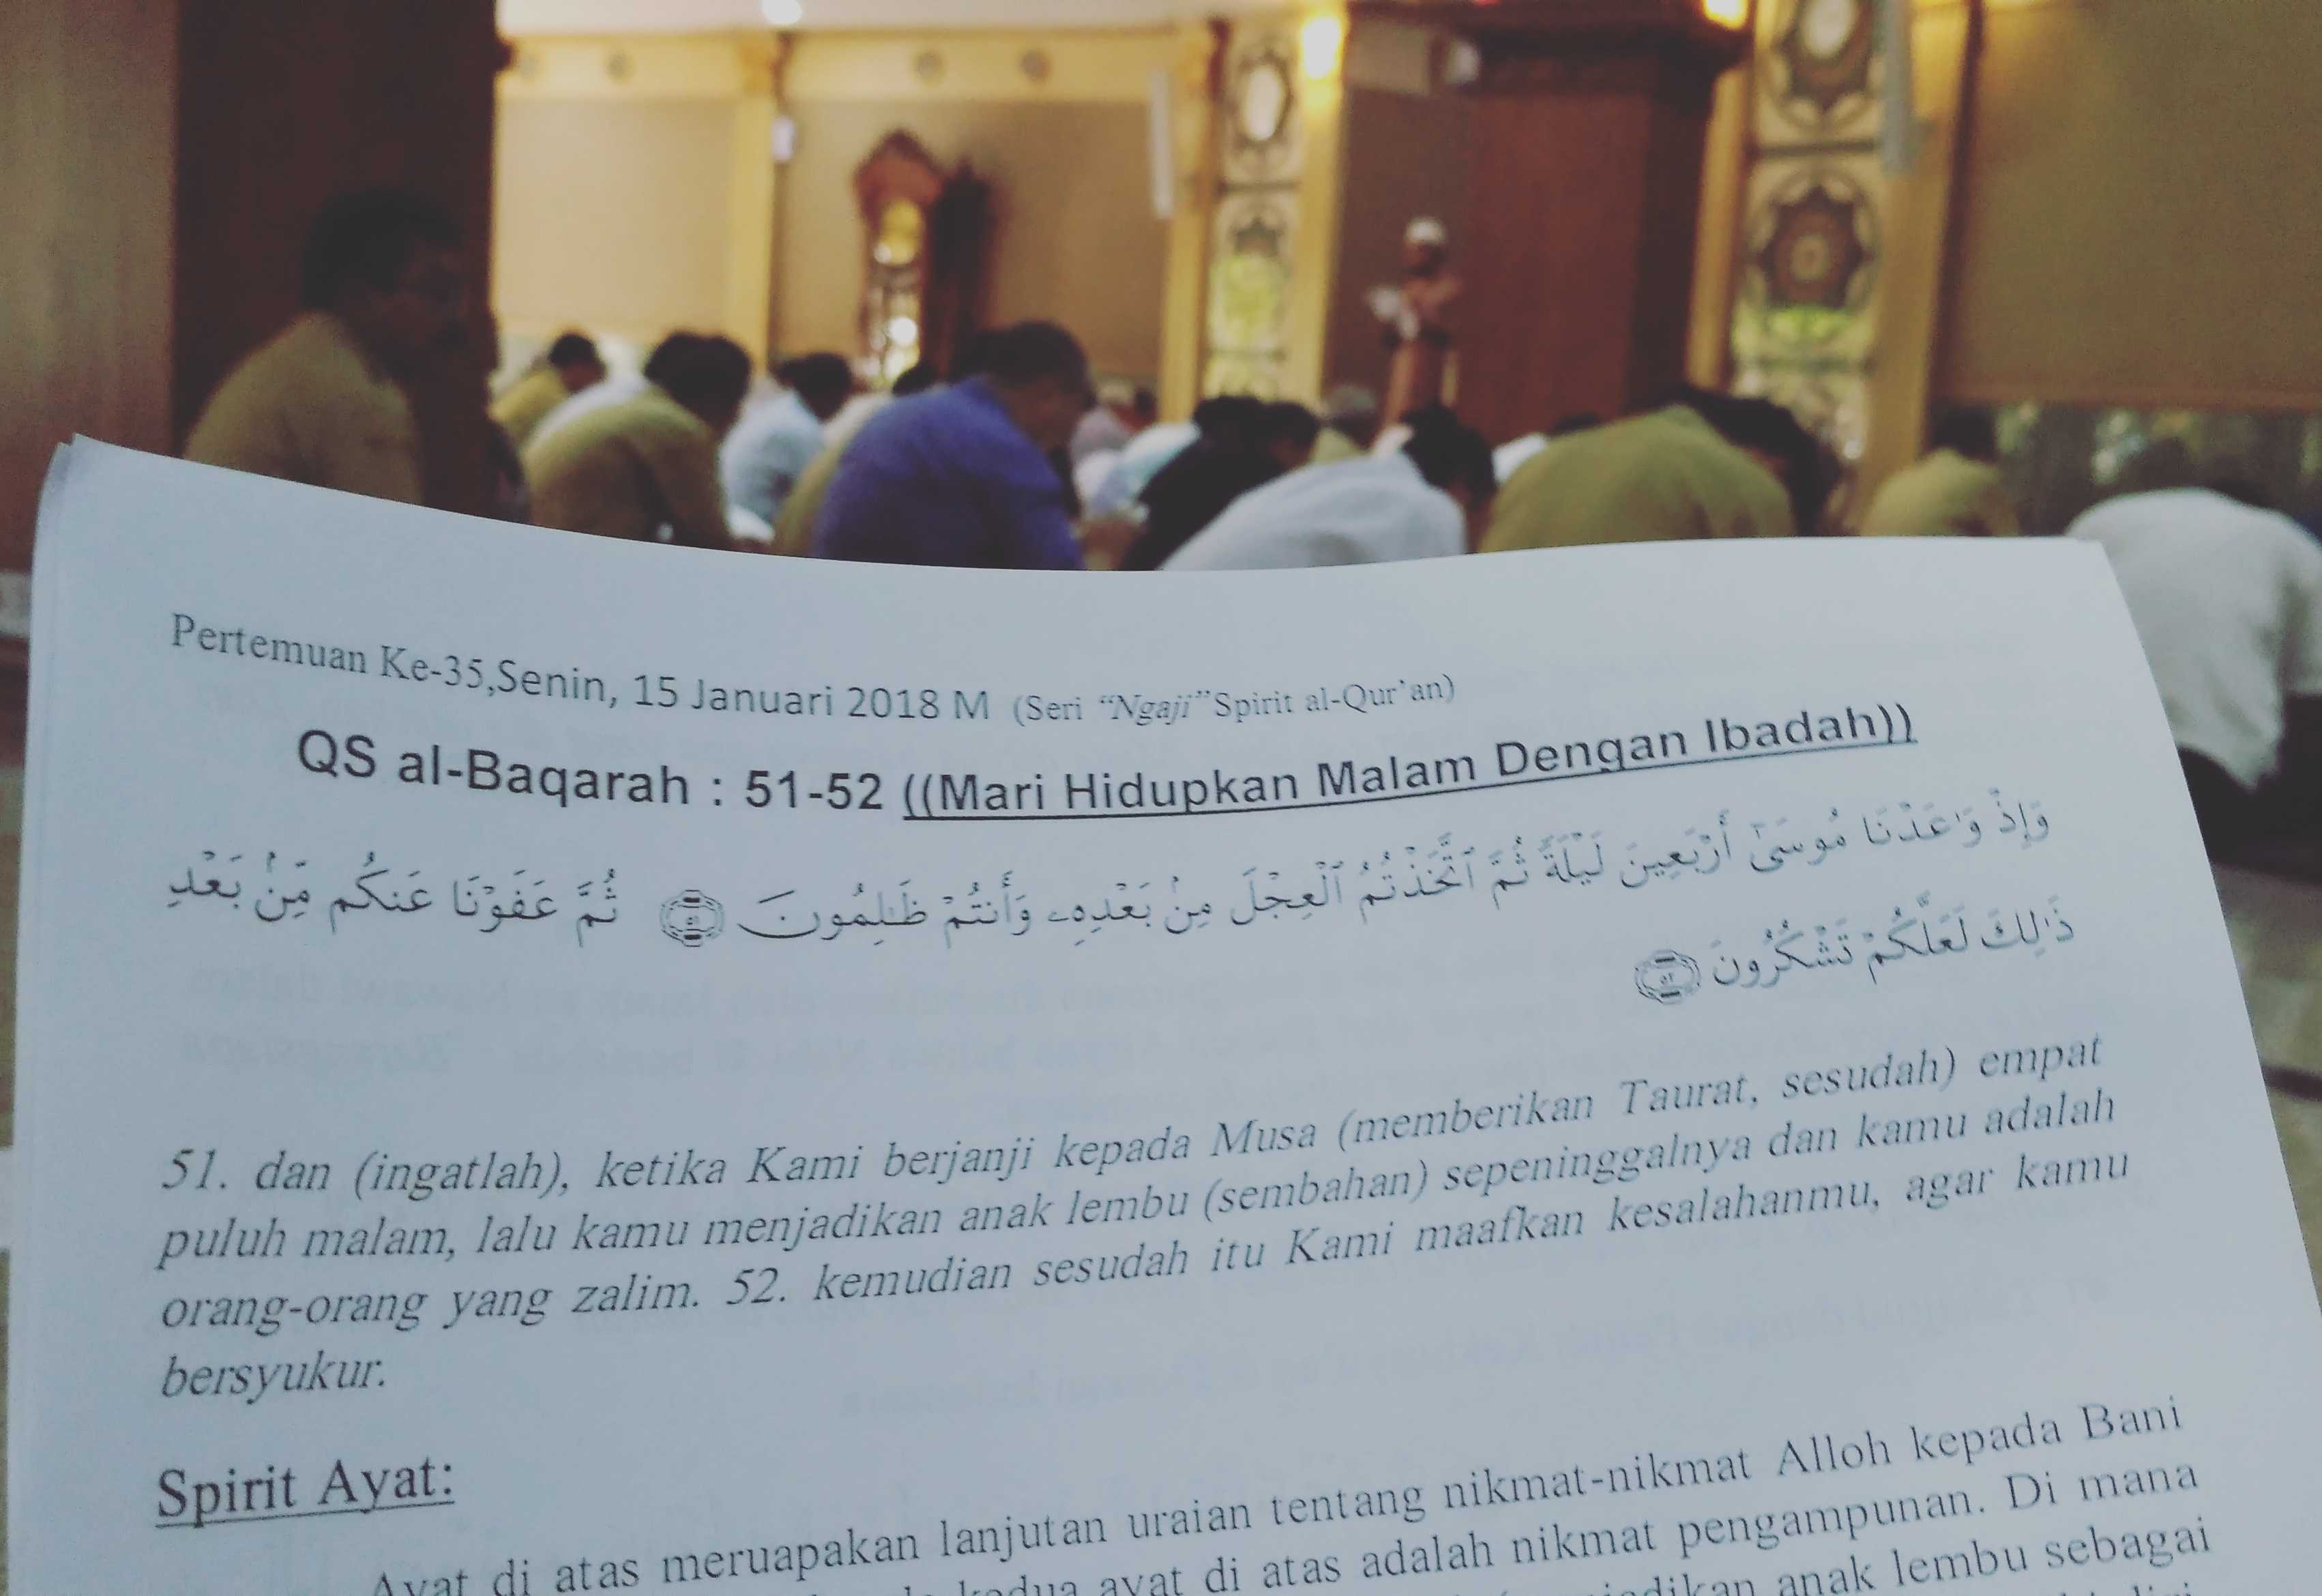 Pertemuan Ke-35,Senin, 15 Januari 2018 M (Seri “Ngaji”Spirit al-Qur’an)
QS al-Baqarah : 51-52 ((Mari Hidupkan Malam Dengan Ibadah))
وَإِذْ وَٰعَدْنَا مُوسَىٰٓ أَرْبَعِينَ لَيْلَةً ثُمَّ ٱتَّخَذْتُمُ ٱلْعِجْلَ مِنۢ بَعْدِهِۦ وَأَنتُمْ ظَٰلِمُونَ ۝٥١ ثُمَّ عَفَوْنَا عَنكُم مِّنۢ بَعْدِ
ذَٰلِكَ لَعَلَّكُمْ تَشْكُرُونَ ۝٥٢
51. dan (ingatlah), ketika Kami berjanji kepada Musa (memberikan Taurat, sesudah) empat
puluh malam, lalu kamu menjadikan anak lembu (sembahan) sepeninggalnya dan kamu adalah
orang-orang yang zalim. 52. kemudian sesudah itu Kami maafkan kesalahanmu, agar kamu
bersyukur.
Spirit Ayat:
Ayat di atas meruapakan lanjutan uraian tentang nikmat-nikmat Alloh kepada Bani
kedua ayat di atas adalah nikmat pengampunan. Di mana
anak lembu sebagai